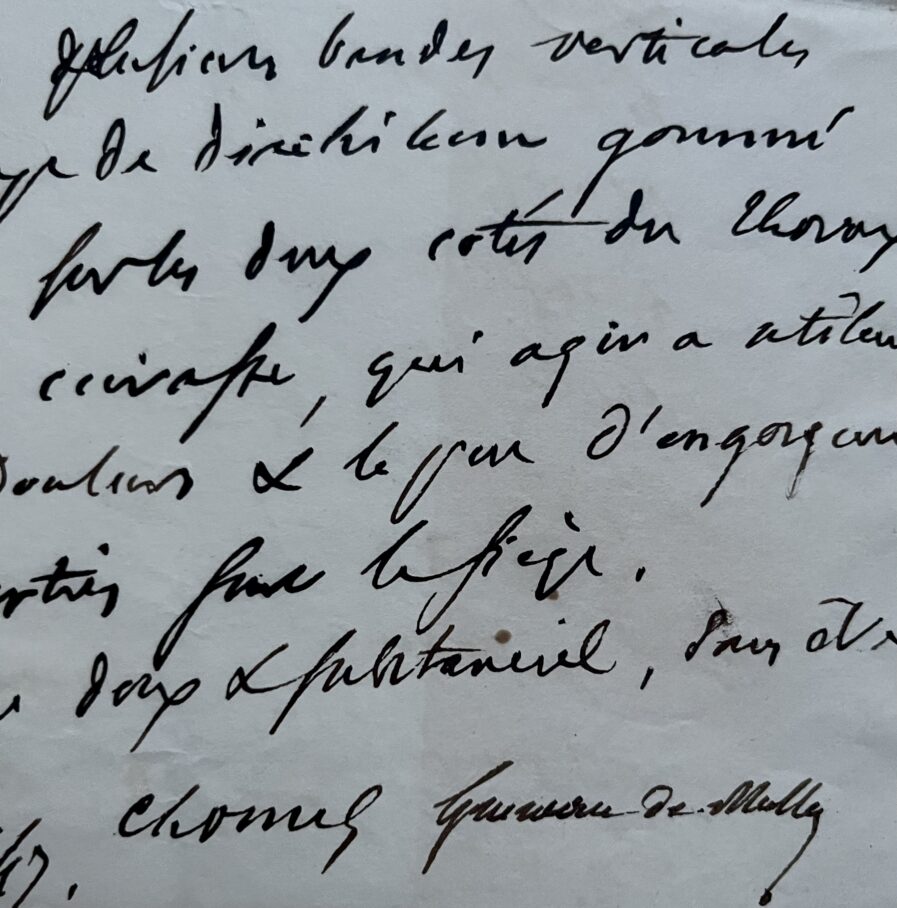 plusieurs bandes verticales
de diachilum gommé
sur les deux cotés du thorax
cuirasse, qui agira utilem
douleurs & le peu d'engorgem
parties sur le siège.
doux & substantiel, sans être
Chomel Gueneau de Mussy